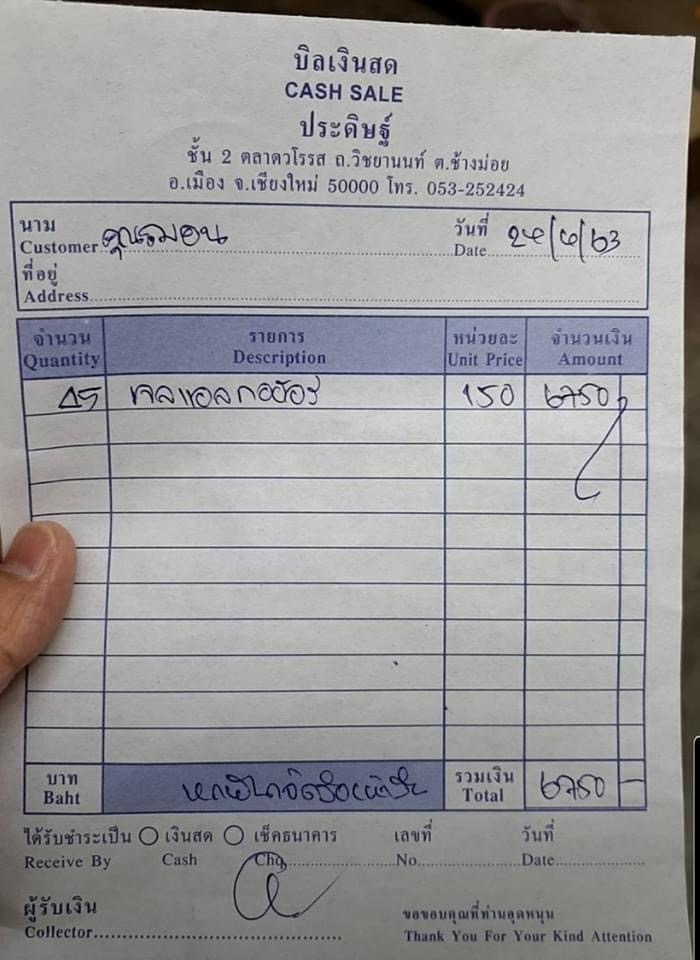 บิลเงินสด
CASH SALE
ประดิษฐ์
ชั้น 2 ตลาดวโรรส ถ.วิชยานนท์ ต.ช้างม่อย
อ.เมือง จ.เชียงใหม่ 50000 โทร. 053-252424
นาม
Customer
วันที่
Date
ที่อยู่
Address
จำนวน รายการ หน่วยละ จำนวนเงิน
Quantity Description Unit Price Amount
45 เจลแอลกอฮอร์ 150 6750
บาท หกพันเจ็ดร้อยห้าสิบ รวมเงิน 6750 -
Baht Total
ได้รับชำระเป็น เงินสด เช็คธนาคาร เลขที่ วันที่
Receive By Cash Chq. No. Date
ผู้รับเงิน ขอขอบคุณที่ท่านอุดหนุน
Collector Thank You For Your Kind Attention